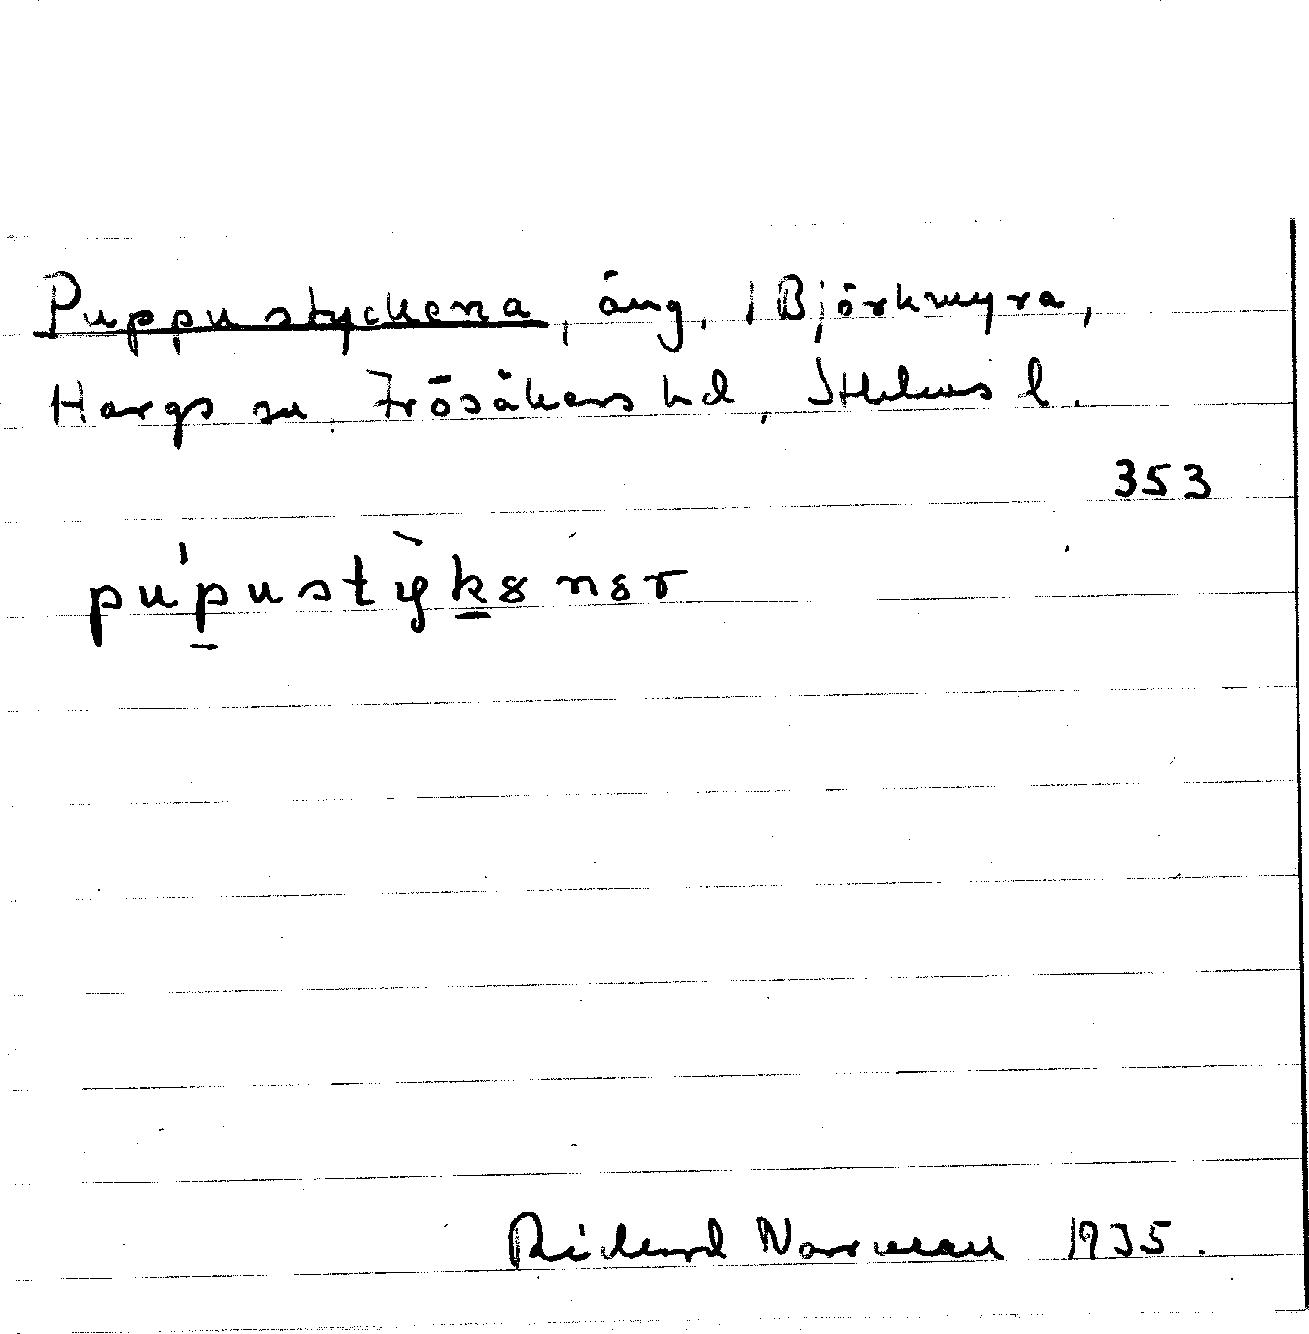 Puppustyckena, äng, 1 Björkmyra,
Hargs sn. Frösåkers hd, Sthlms l.
353
pu̍p̲ustỳk̲ɘnɘr
Richard Norrman 1935.